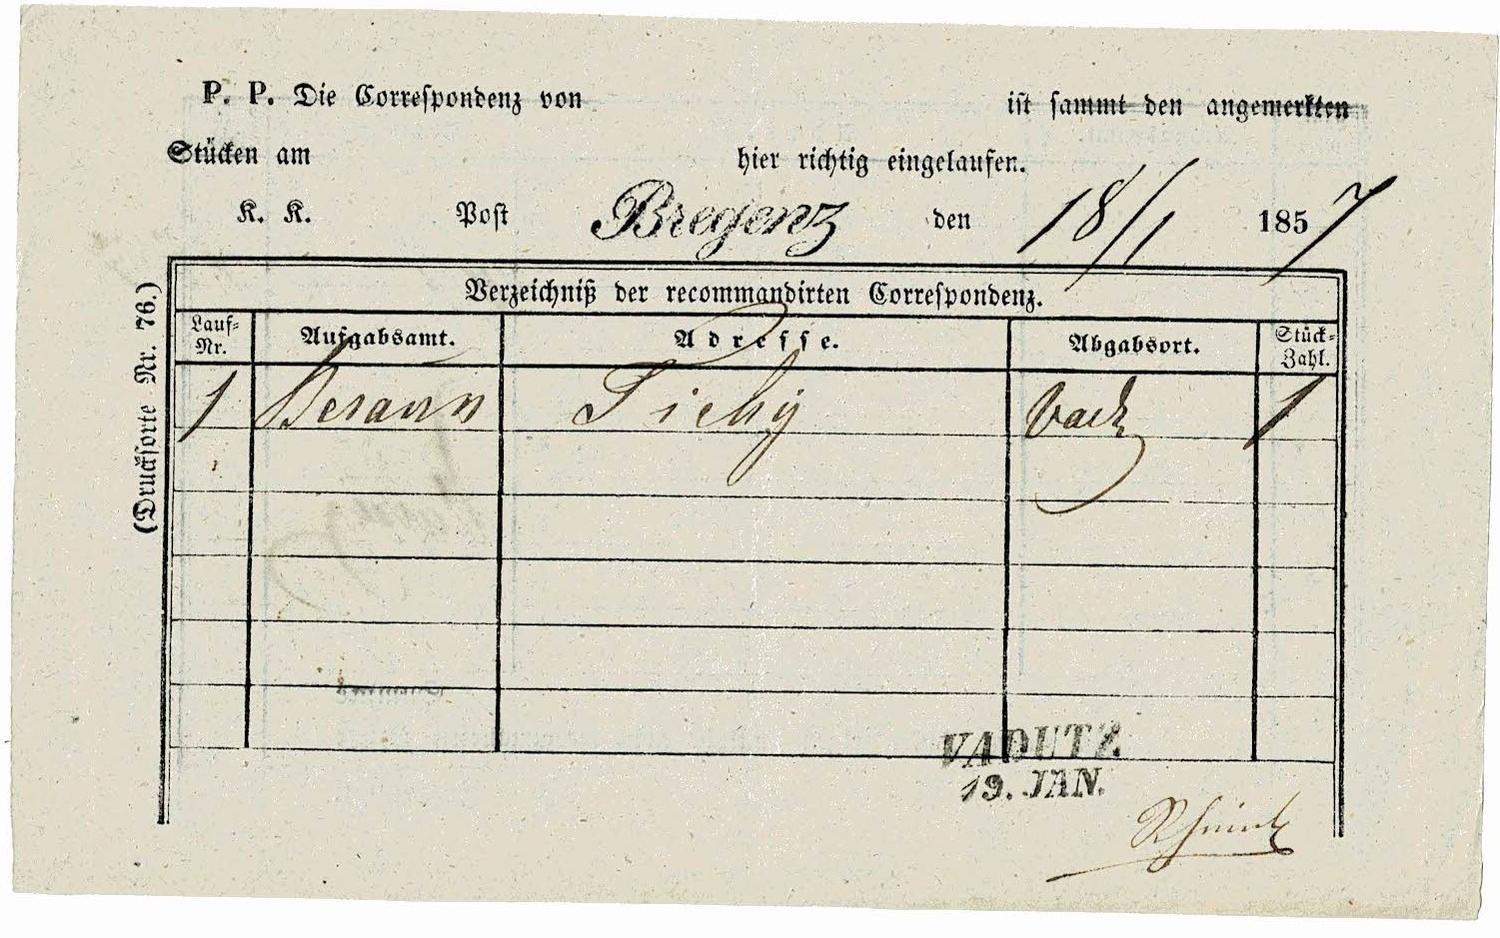 P. P. Die Correspondenz von ist sammt den angemerkten
Stücken am hier richtig eingelaufen.
K. K. Post Bregenz den 18/1 1857
(Drucksorte Nr. 76.)
Verzeichniß der recommandirten Correspondenz.
Lauf-Nr. Aufgabsamt. Adresse. Abgabsort. Stück-Zahl.
1 Beraun Tichy 1
VADUTZ
19. JAN.